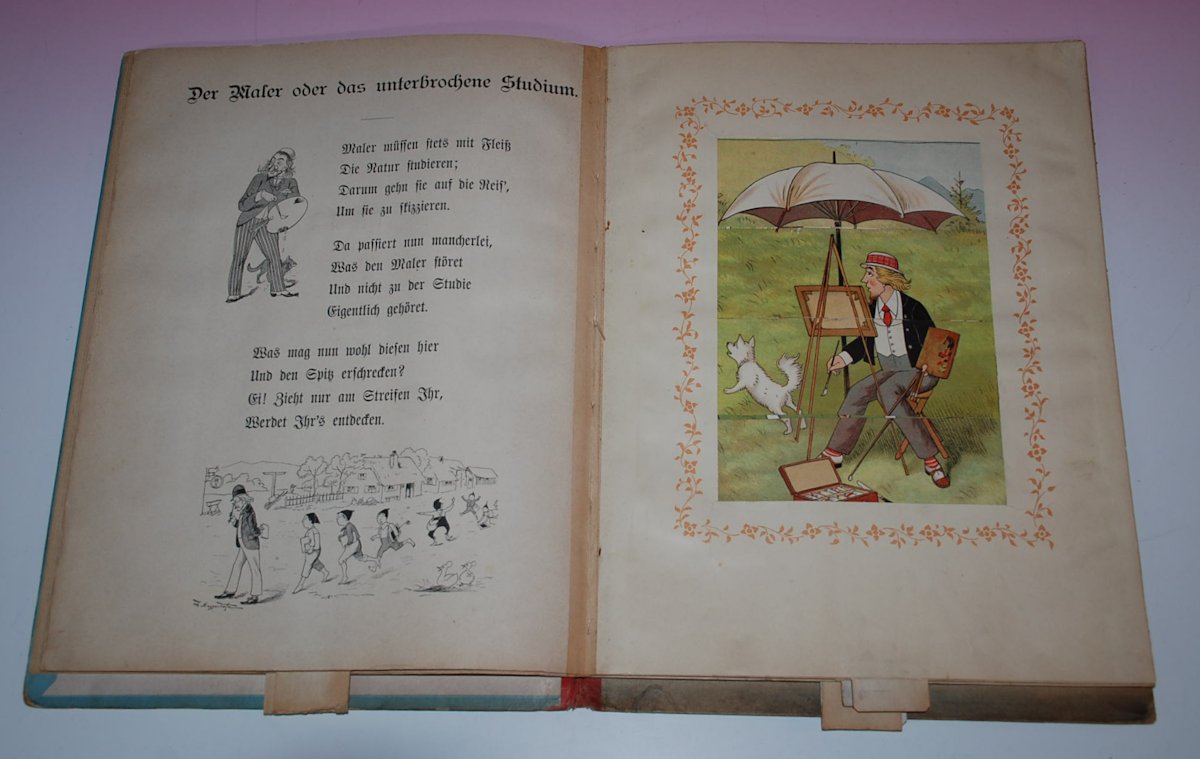 Der Maler oder das unterbrochene Studium.
Maler müssen stets mit Fleiß
Die Natur studieren;
Darum gehn sie auf die Reis',
Um sie zu skizzieren.
Da passiert nun mancherlei,
Was den Maler störet
Und nicht zu der Studie
Eigentlich gehöret.
Was mag nun wohl diesen hier
Und den Spitz erschrecken?
Ei! Zieht nur am Streifen Ihr,
Werdet Ihr's entdecken.